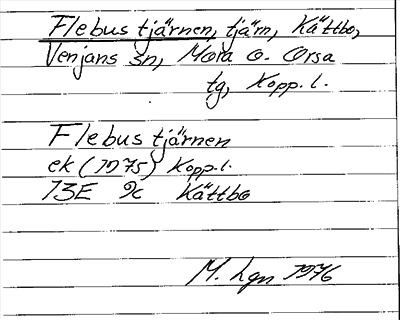 Flebustjärnen, tjärn, Kättbo,
Venjans sn, Mora o. Orsa
tg, Kopp. l.
Flebustjärnen
ek (1975) Kopp.l.
13E 9c Kättbo
M. Lgn 1976